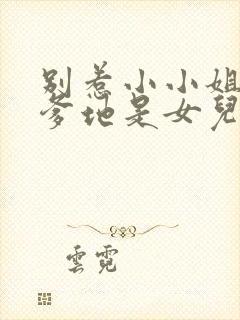 別惹小小姐
爹地是女兒
雲霓